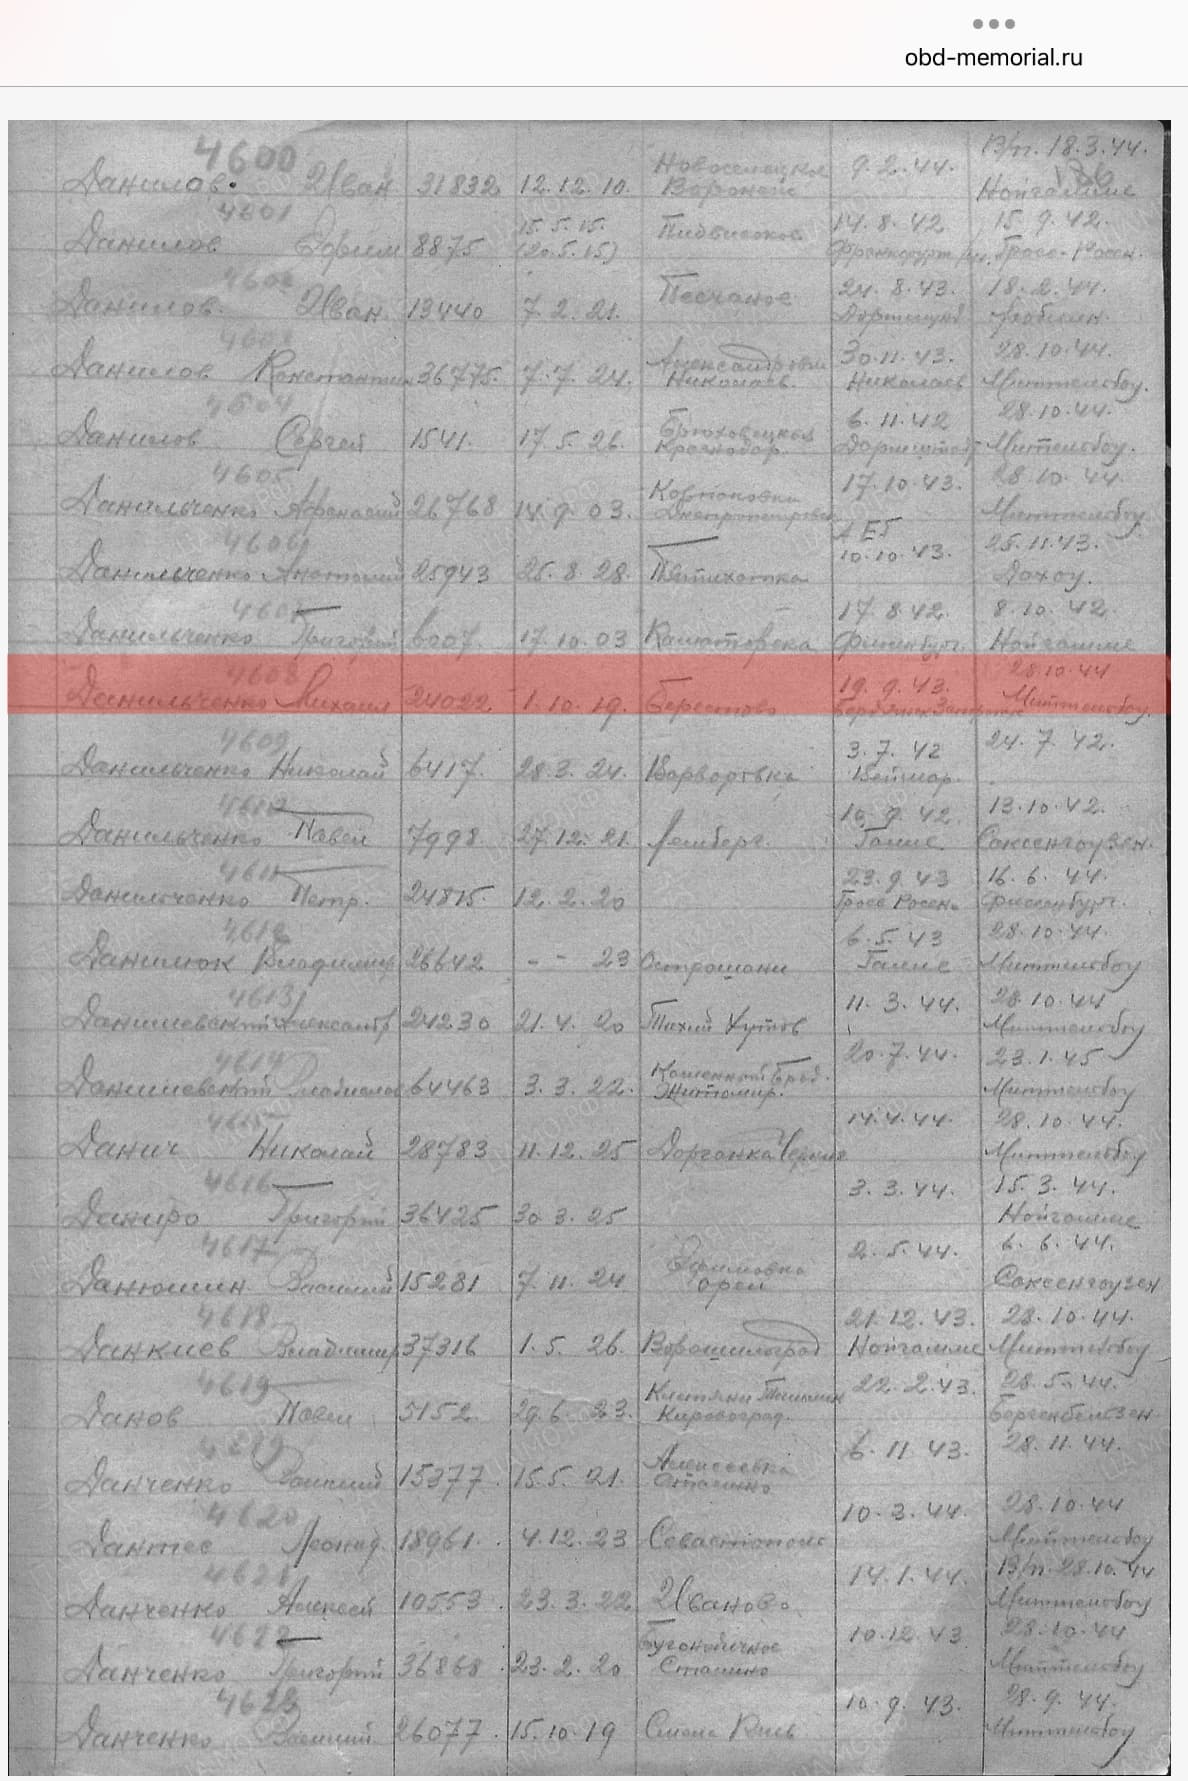 obd-memorial.ru
4600
Данилов. Иван 31832 12.12.10. Новоселецкое Воронеж 9.2.44. В/п. 18.3.44. Нойгамме
4601
Данилов Ефим 8875 15.5.15. (20.5.15) 14.8.42 Франкфурт 15.9.42. Гросс-Розен.
Данилов. Иван 13440 7.2.21. Песчаное 24.8.43. Дортмунд 18.2.44. Люблин.
Данилов Константин 36775. 7.7.24. Николаев. 30.11.43. Николаев 28.10.44. Миттельбау.
4604
Данилов Сергей 1541. 17.5.26. Брюховецкая Краснодар. 6.11.42 28.10.44. Миттельбау.
4605
Данильченко Афанасий 26768 14.9.03. Днепропетровск 17.10.43. 28.10.44. Миттельбау
4606
Данильченко Анатолий 25943 25.8.28. Пятихотка АЕБ 10.10.43. 25.11.43. Дахау.
Данильченко Григорий 17.10.03 17.8.42. 8.10.42. Нойгамме
4608
Данильченко Михаил 24022 1.10.19. Берестово 19.9.43. Бердянск 28.10.44 Миттельбау.
4609
Данильченко Николай 6417. 28.3.24. 3.7.42 Веймар. 24.7.42.
4610
Данильченко Павел 7998. 27.12.21. Лемберг. Галле. 13.10.42. Саксенгаузен.
4611
Данильченко Петр. 24815. 12.2.20 23.9.43 Гросс Розен. 16.6.44. Флоссенбург.
4612
Данилюк Владимир 26642 - - 23 Острошани 6.5.43 Галле 28.10.44. Миттельбау
4613
Данишевский Александр 24230 21.4.20 Тихий Хутор 11.3.44. 28.10.44 Миттельбау
4614
Данишевский 64463 3.3.22. Каменный Брод. Житомир. 20.7.44. 23.1.45 Миттельбау
4615
Данич Николай 28783 11.12.25 14.4.44. 28.10.44. Миттельбау
4616
Даниро Григорий 36425 30.3.25 3.3.44. 15.3.44. Нойгамме
4617
Данюшин Василий 15281 7.11.24 Ефимовка Орел 2.5.44. 6.6.44. Саксенгаузен
4618
Данкиев Владимир 37316 1.5.26. Ворошилоград 21.12.43. Нойгамме 28.10.44. Миттельбау
4619
Данов Павел 5152 29.6.23. Кировоград. 22.2.43. 28.5.44. Бергенбельзен
4619
Данченко Василий 15377. 15.5.21. Алексеевка Сталино 6.11.43. 28.11.44.
4620
Дантес Леонид. 18961. 4.12.23 Севастополь 10.3.44. 28.10.44 Миттельбау
4621
Данченко Алексей 10553. 23.3.22 Иваново 14.1.44. В/п. 28.10.44 Миттельбау
4622
Данченко Григорий 36868. 23.2.20 Сталино 10.12.43 28.10.44 Миттельбау
4623
Данченко Василий 26077. 15.10.19 10.9.43. 28.9.44. Миттельбау